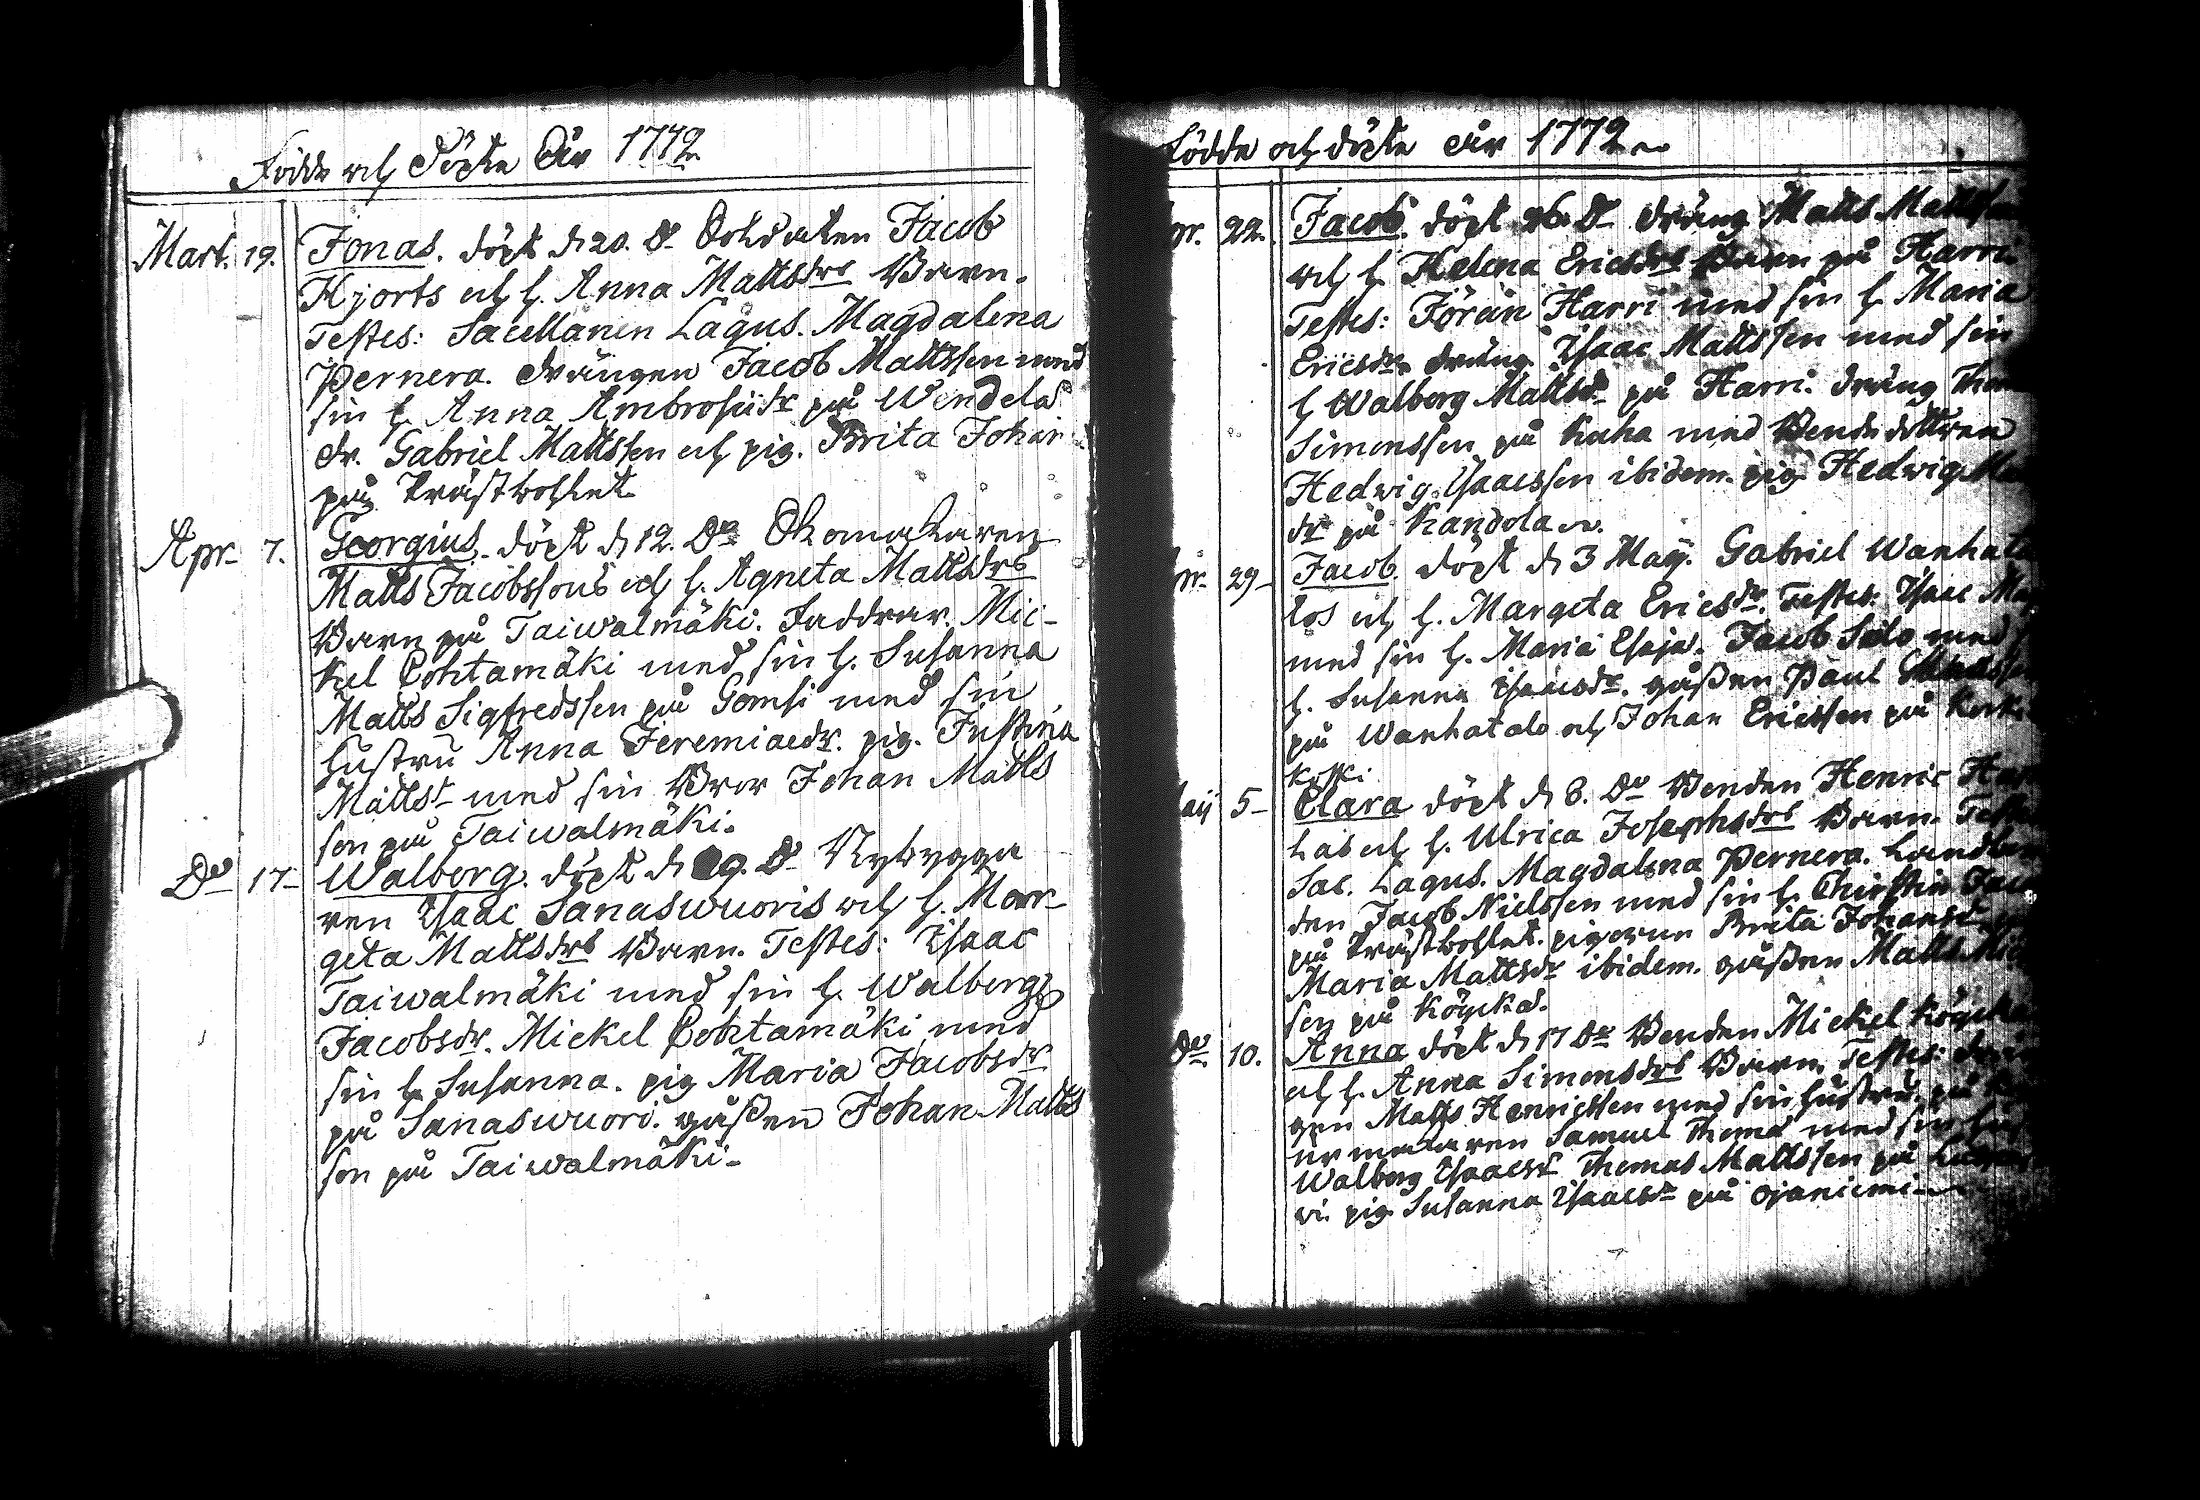 Födde och Döpte År 1772
Mart. 19. Jonas. döpt d. 20. Do Soldaten Jacob
Hjorts och h. Anna Mattsdrs Barn.
Testes: Sacellanen Lagus. Magdalena
Pernera. drängen Jacob Mattssen med
sin h. Anna Ambrosiidr på Wendela
dr. Gabriel Mattssen och pig. Brita Johan
på Prästbohlet
Apr. 7. Georgius. döpt d. 12. Do Skomakaren
Matts Jacobssons och h. Agneta Mattsdrs
Barn på Taiwalmäki. Faddrar. Mic-
kel Lohtamäki med sin h. Susanna
Matts Sigfredssen på Gomsi med sin
hustru Anna Jeremiaedr. pig. Justina
Matts med sin Bror Johan Matts
son på Taiwalmäki.
Do 17 Walborg. döpt d. 19. Do Nybygga
ren Isaac Sanaswuoris och h. Mar-
geta Mattsdrs Barn. Testes: Isaac
Taiwalmäki med sin h. Walborg
Jacobsdr. Mickel Lohtamäki med
sin h. Susanna. pig Maria Jacobsdr
på Sanaswuori. gåßen Johan Matts
son på Taiwalmäki
Födde och döpte åir 1772
pr. 22. Jacob. döpt 26. Do dräng Matts Mattssen
och h. Helena Ericsdrs Barn på Harri
Testes: Jöran Harri med sin h. Maria
Ericsdr. dräng Isaac Mattssen med sin
h Walborg Mattsdr på Harri. dräng Thom
Simonssen på Kuha med Bondedottren
Hedwig Isaacssen ibidem. pig Hedwig
dr på Kandola
pr. 29 Jacob. döpt d. 3 Maÿ. Gabriel Wanhata
los och h. Margeta Ericsdr. Testes: Isaac
med sin h. Maria Esaja. Jacob Salo med
h. Susanna Isaacsdr. gåßen Paul
på Wanhatalo och Johan Ericssen på Kork
koski
aÿ 5 Clara döpt d. 8. Do Bonden Henric
las och h. Ulrica Josephsdrs Barn. Testes
Sac. Lagus. Magdalena Pernera. Landbon
den Jacob Nielssen med sin h. Chirstin Jacob
på Prästbohlet. pigorne Brita Johansdr
Maria Mattsdr ibidem. gåßen Matts Mic
sen på Köyckä.
Do 10. Anna döpt d. 17 Do Bonden Mickel Köycka
och h. Anna Simonsdrs Barn. Testes: drän
gen Matts Henricssen med sin hustru. på
urmakaren Samuel Thomé med sin hus
Walborg Isaacsdr Thomas Mattssen på
vi. pig Susanna Isaacsdr på Ojaniemi